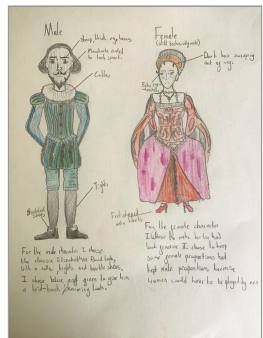 Male
Sharp, thick eyebrows
Moustache curled
to look smart.
Collar
Tights
Buckled
shoes
For the male character I chose
the classic Elizabethan Bard look,
with a ruff, tights and buckle shoes.
I chose blue and green to give him
a laid-back, charming look.
Female
(still technically male)
Dark hair sweeping
out of wig.
For the female character
I chose to keep
some female proportions but
kept male proportions because
women would have to be played by men